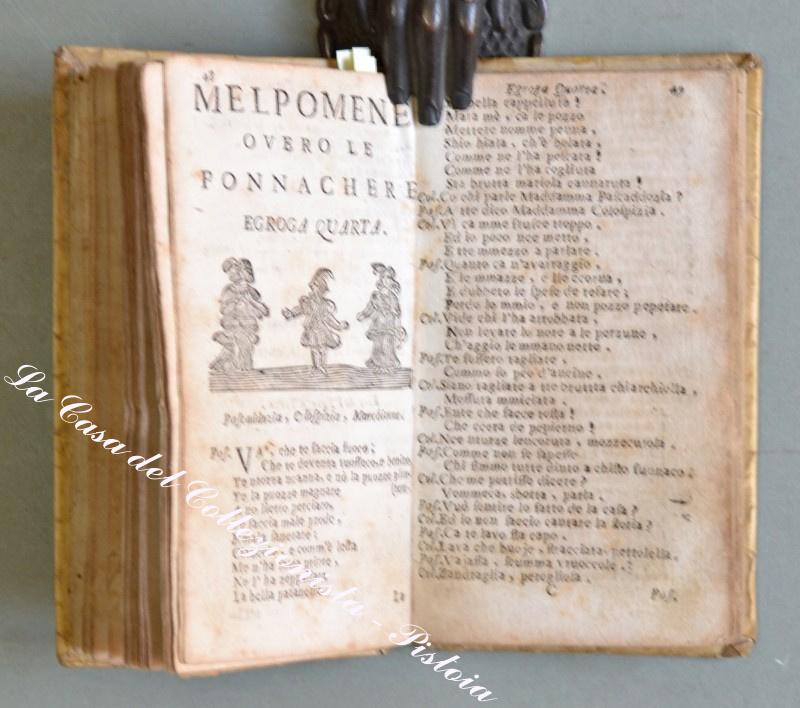 48
MELPOMENE
OVERO LE
FONNACHERE
EGROGA QUARTA.
Pascaddozia, Colospizia, Marcdionne.
Pos. VA, che te faccia fuoco;
Che te deventa tuosseco, e
Te ntorza ncanna, e nò la puozze
Te la puozze magnare
lietto perciato,
faccia male prode,
lanerare;
e comm'è lesta
Me n'ha
No l'ha
La bella patanchella
La
Egroga Quarta. 49
bella cappellura!
Mara mè, ca le pozzo
Mettere nomme penna,
Shio hiata, ch'è bolata,
Comme ne l'ha pelcata!
Comme ne l'ha cogliuta
Sta brutta mariola cannaruta!
Col. Co chi parle Maddamma Pascaddozia?
Pos. A tte dico Maddamma Colospizia.
Col. Vì ca mme struice troppo,
Ed io poco nce metto,
E tte mmezzo a parlare.
Pos. Quanto ca n'avarraggio
E le mmazze, e lle ccorna,
E dubbeto le spese de refare;
Perdo lo mmio, e non pozzo pepetare.
Col. Vide chi l'ha arrobbata,
Non levare lo nore a le perzune,
Ch'aggio le mmano nette.
Pos. Te fussero tagliate,
Commo so ped'ancine.
Col. Siano tagliate a tte brutta chiarchiolla,
Mossura mmiciata.
Pos. Ente che facce tosta!
Che ccera de pepierno!
Col. Nce nturze lencoruta, mozzecutola.
Pos. Comme non se sapesse
Chi simmo tutte dinto a chisto funnaco;
Col. Che me potrisse dicere?
Vommeca, sbotta, parla.
Pos. Vuò sentire lo fatto de la casa?
Col. Ed io non faccio cantare la storia?
Pos. Ca te lavo sta capo.
Col. Lava che buoje, stracciata, pettolella.
Pos. Vajassa, scumma vruoccole.
Col. Zandraglia, peregliosa.
C
Pos.
La Casa del Collezionista - Pistoia